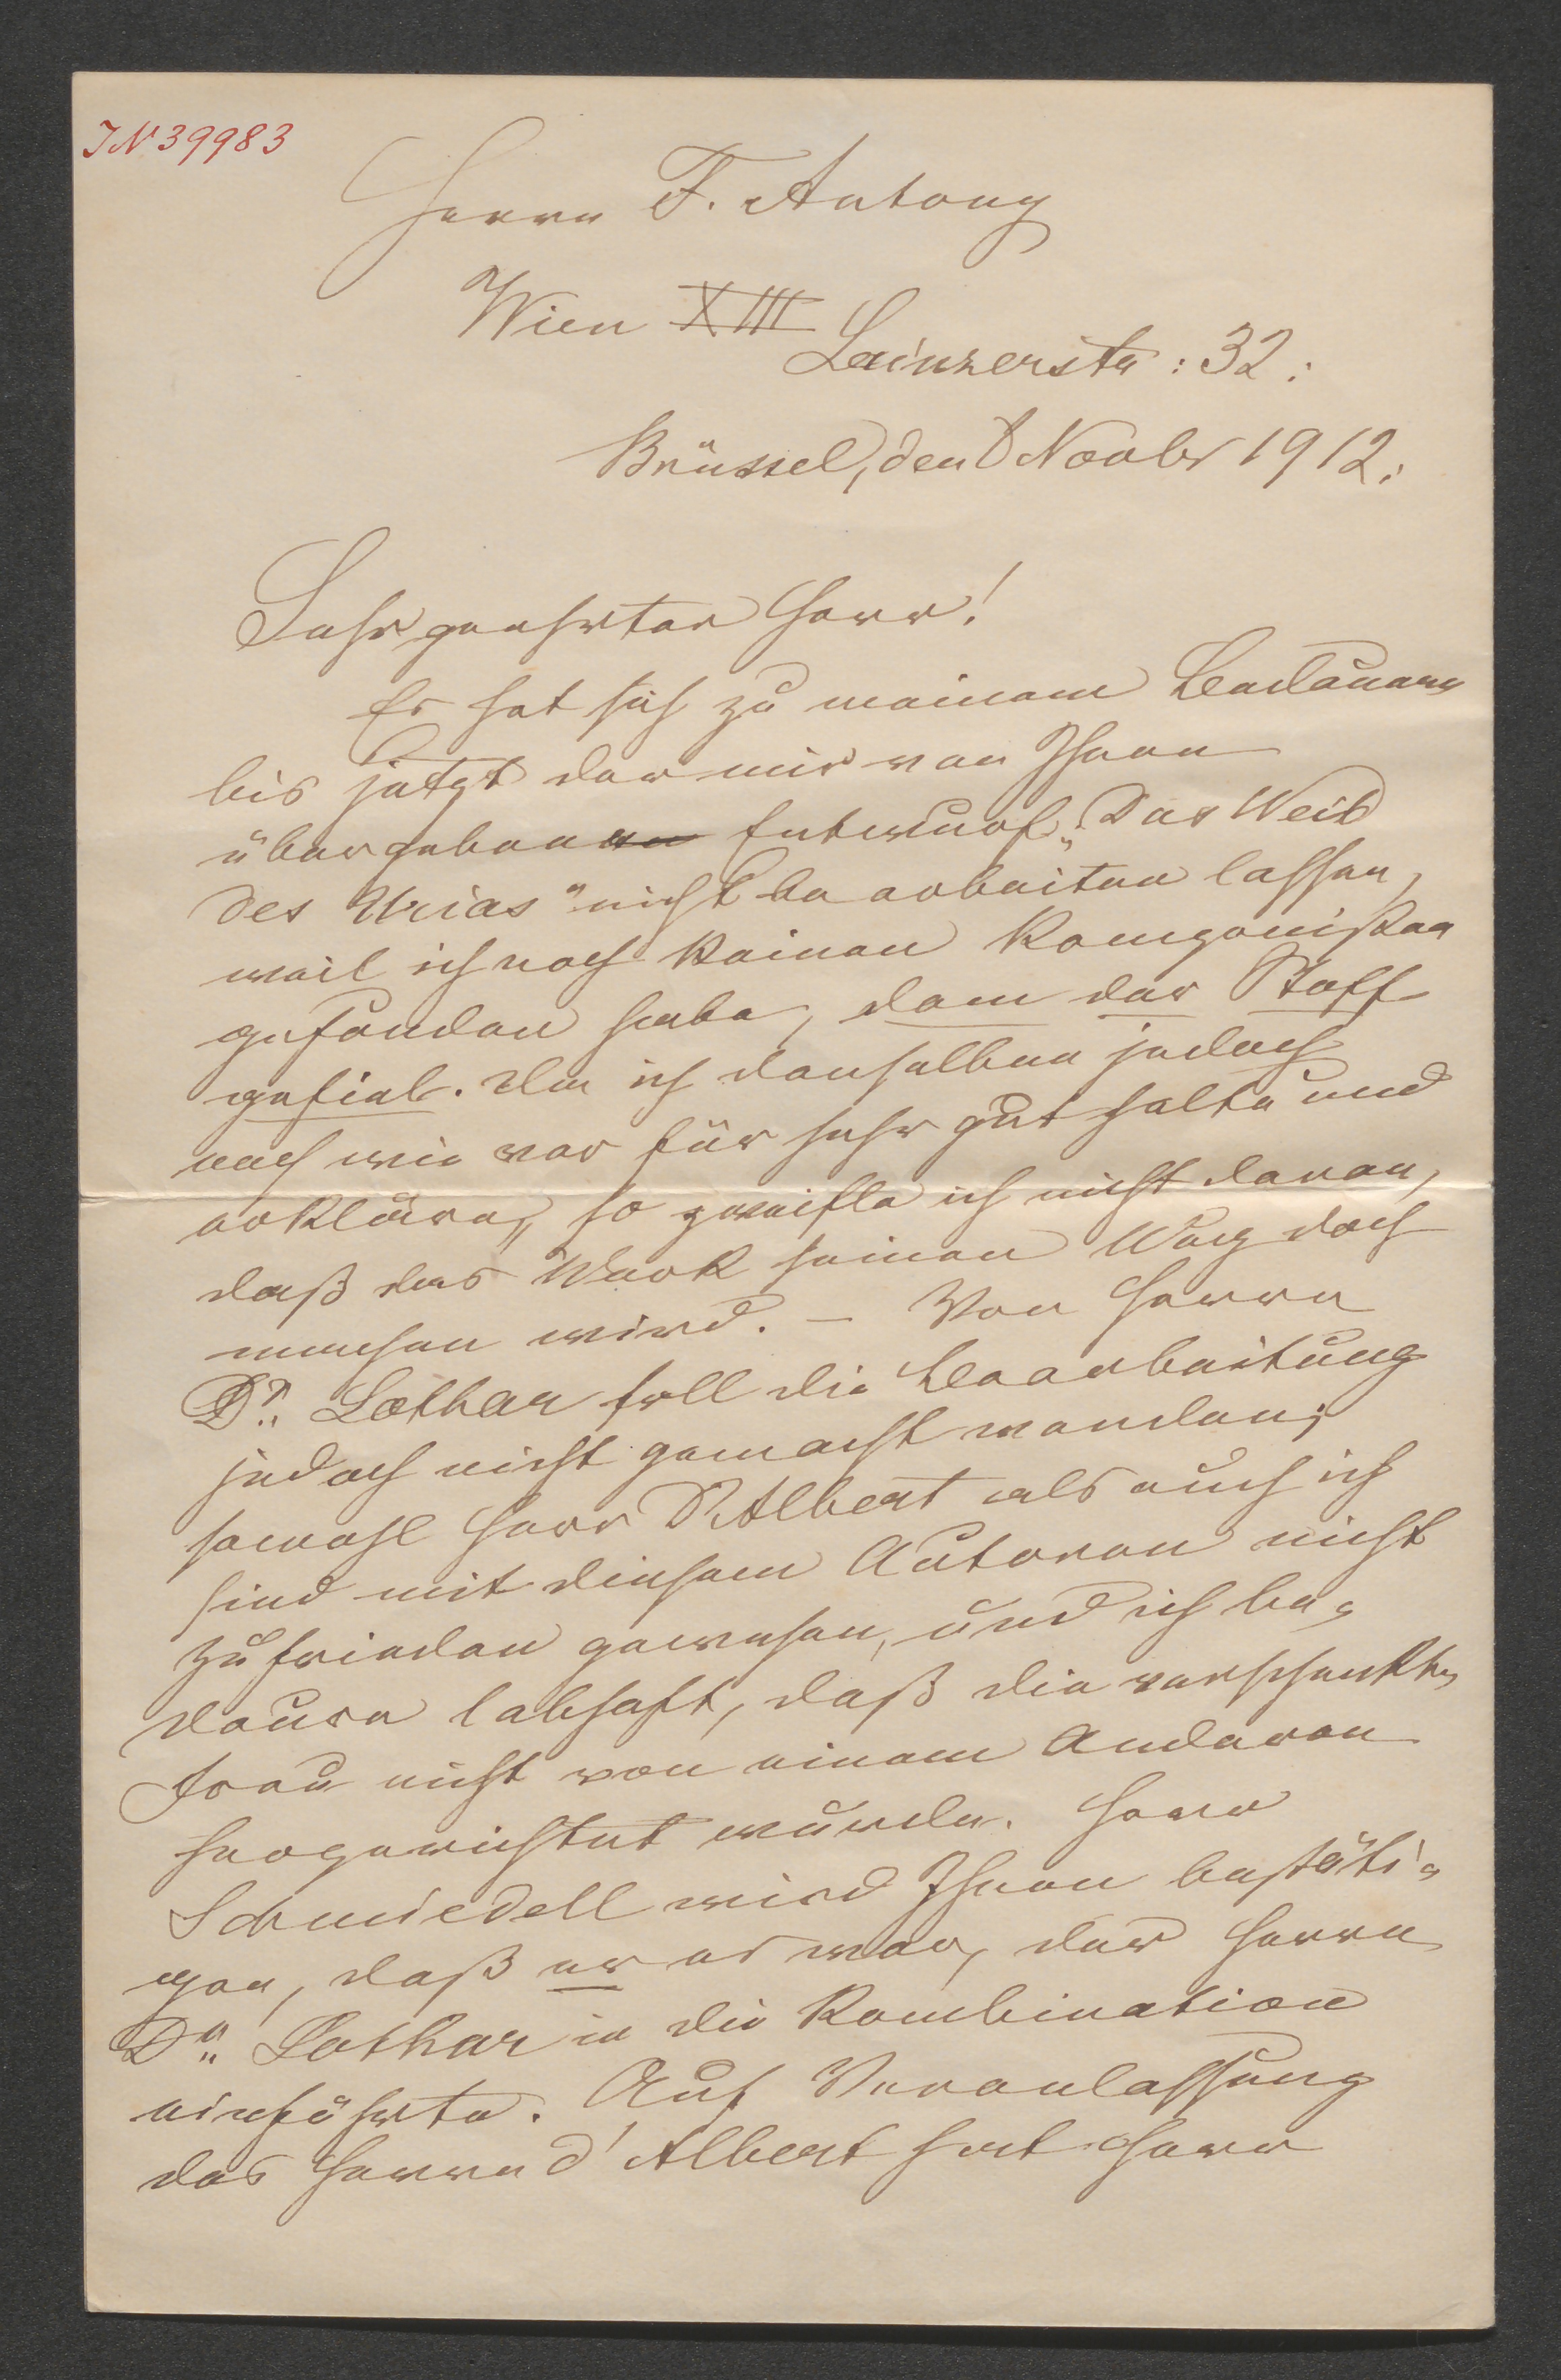 IN 39983
Herrn F. Antony
Wien XIII
Lainzerstr: 32.
Brüssel, den 8 Novbr 1912.
Sehr geehrter Herr!
Es hat sich zu meinem Bedauern
bis jetzt der mir von Ihnen
übergebene Entwurf: „Das Weib
des Urias" nicht bearbeiten lassen,
weil ich noch keinen Komponisten
gefunden habe, dem der Stoff
gefiel. Da ich denselben jedoch
nach wie vor für sehr gut halte und
erkläre, so zweifle ich nicht daran,
daß das Werk seinen Weg doch
machen wird. – Von Herrn
Dr. Lothar soll die Bearbeitung
jedoch nicht gemacht werden;
sowohl Herr d'Albert als auch ich
sind mit diesem Autoren nicht
zufrieden gewesen, und ich be-
daure lebhaft, daß die verschenkte
Frau nicht von einem Anderen
hergerichtet wurde. Herr
Schmiedell wird Ihnen bestäti-
gen, daß er es war, der Herrn
Dr. Lothar in die Kombination
einführte. Auf Veranlassung
des Herrn d'Albert hat Herr